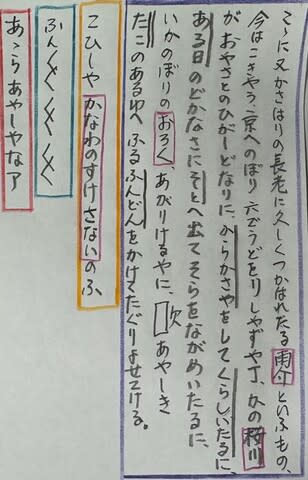 こゝに又かさはりの長老に久しくつかはれたる雨介といふもの、
今はこきやう、京へのぼり 六でうどをりしやずや丁、かの桜川
がおやさとのひがしどなりに、からかさやをしてくらしいたるに、
ある日のどかなさにそとへ出てそらをながめいたるに、
いかのぼりのおろく、あがりけるやに、次 あやしき
たこのあるゆへ ふるふんどんをかけてたぐりよせてける。
こひしや かなわのすけさないのふ
ふん〱〱〱〱
あゝらあやしやなア